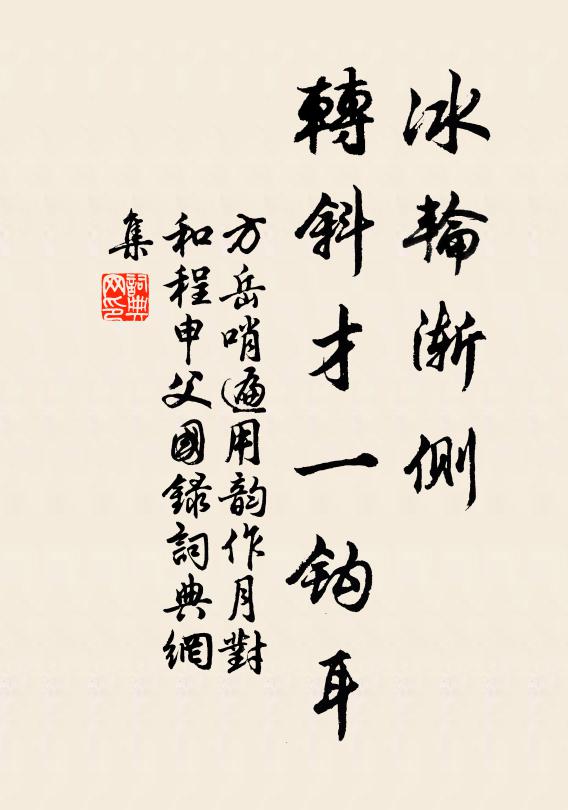 冰輪漸側
轉斜才一鈎耳
方岳哨遍用韵作月對
和程申父國錄詞典網
集
詞典
网印